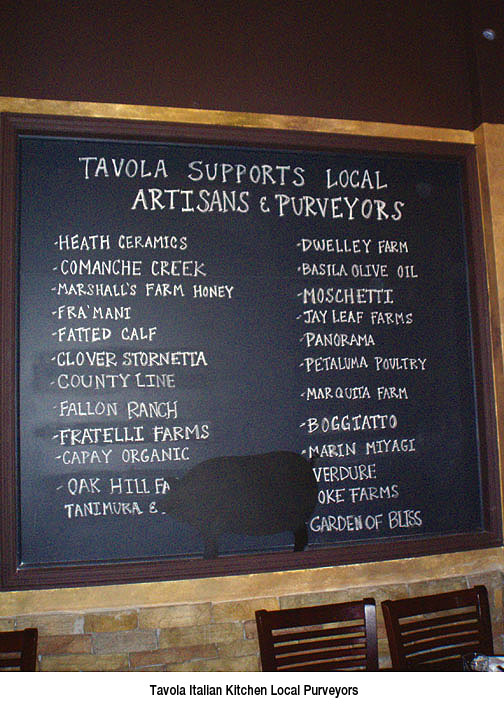 TAVOLA SUPPORTS LOCAL
ARTISANS & PURVEYORS
-HEATH CERAMICS
-COMANCHE CREEK
-MARSHALL'S FARM HONEY
-FRA'MANI
-FATTED CALF
-CLOVER STORNETTA
-COUNTY LINE
-FALLON RANCH
-FRATELLI FARMS
-CAPAY ORGANIC
-OAK HILL FA
TANIMURA &
-DWELLEY FARM
-BASILA OLIVE OIL
-MOSCHETTI
-JAY LEAF FARMS
-PANORAMA
-PETALUMA POULTRY
-MARQUITA FARM
-BOGGIATTO
-MARIN MIYAGI
VERDURE
OKE FARMS
-GARDEN OF BLISS
Tavola Italian Kitchen Local Purveyors